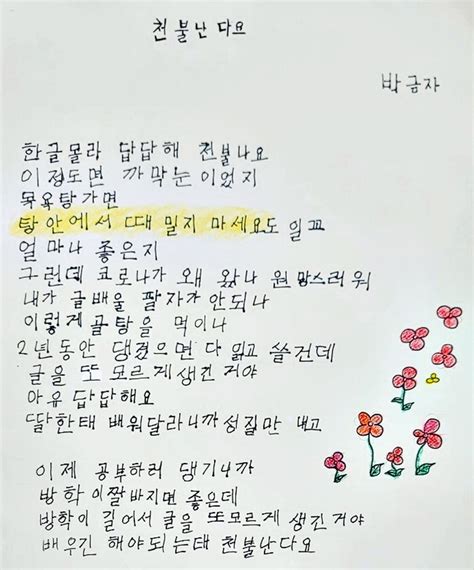 천불난다요
박금자
한글몰라 답답해 천불나요
이정도면 까막눈이었지
목욕탕가면
탕안에서 때 밀지 마세요도 일꼬
얼마나 좋은지
그런데 코로나가 왜 왔나 원망스러워
내가 글배울 팔자가 안되나
이렇게골탕을 먹이나
2년동안 댕겼으면 다 읽고 쓸건데
글을 또 모르게생긴 거야
아유 답답해요
딸한태 배워달라니까성질만 내고
이제 공부하러 댕기니까
방학이짤바지면 좋은데
방학이 길어서글을 또모르게 생긴거야
배우긴 해야되는태 천불난다요